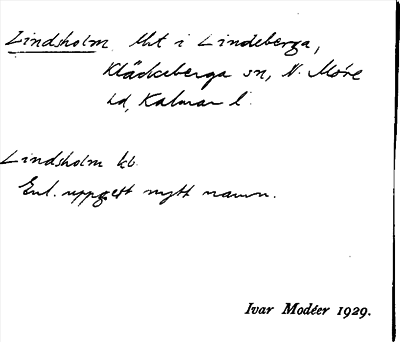 Lindsholm lht i Lindeberga,
Kläckeberga sn, N. Möre
hd, Kalmar l.
Lindsholm kb.
Enl. uppgett nytt namn.
Ivar Modéer 1929.